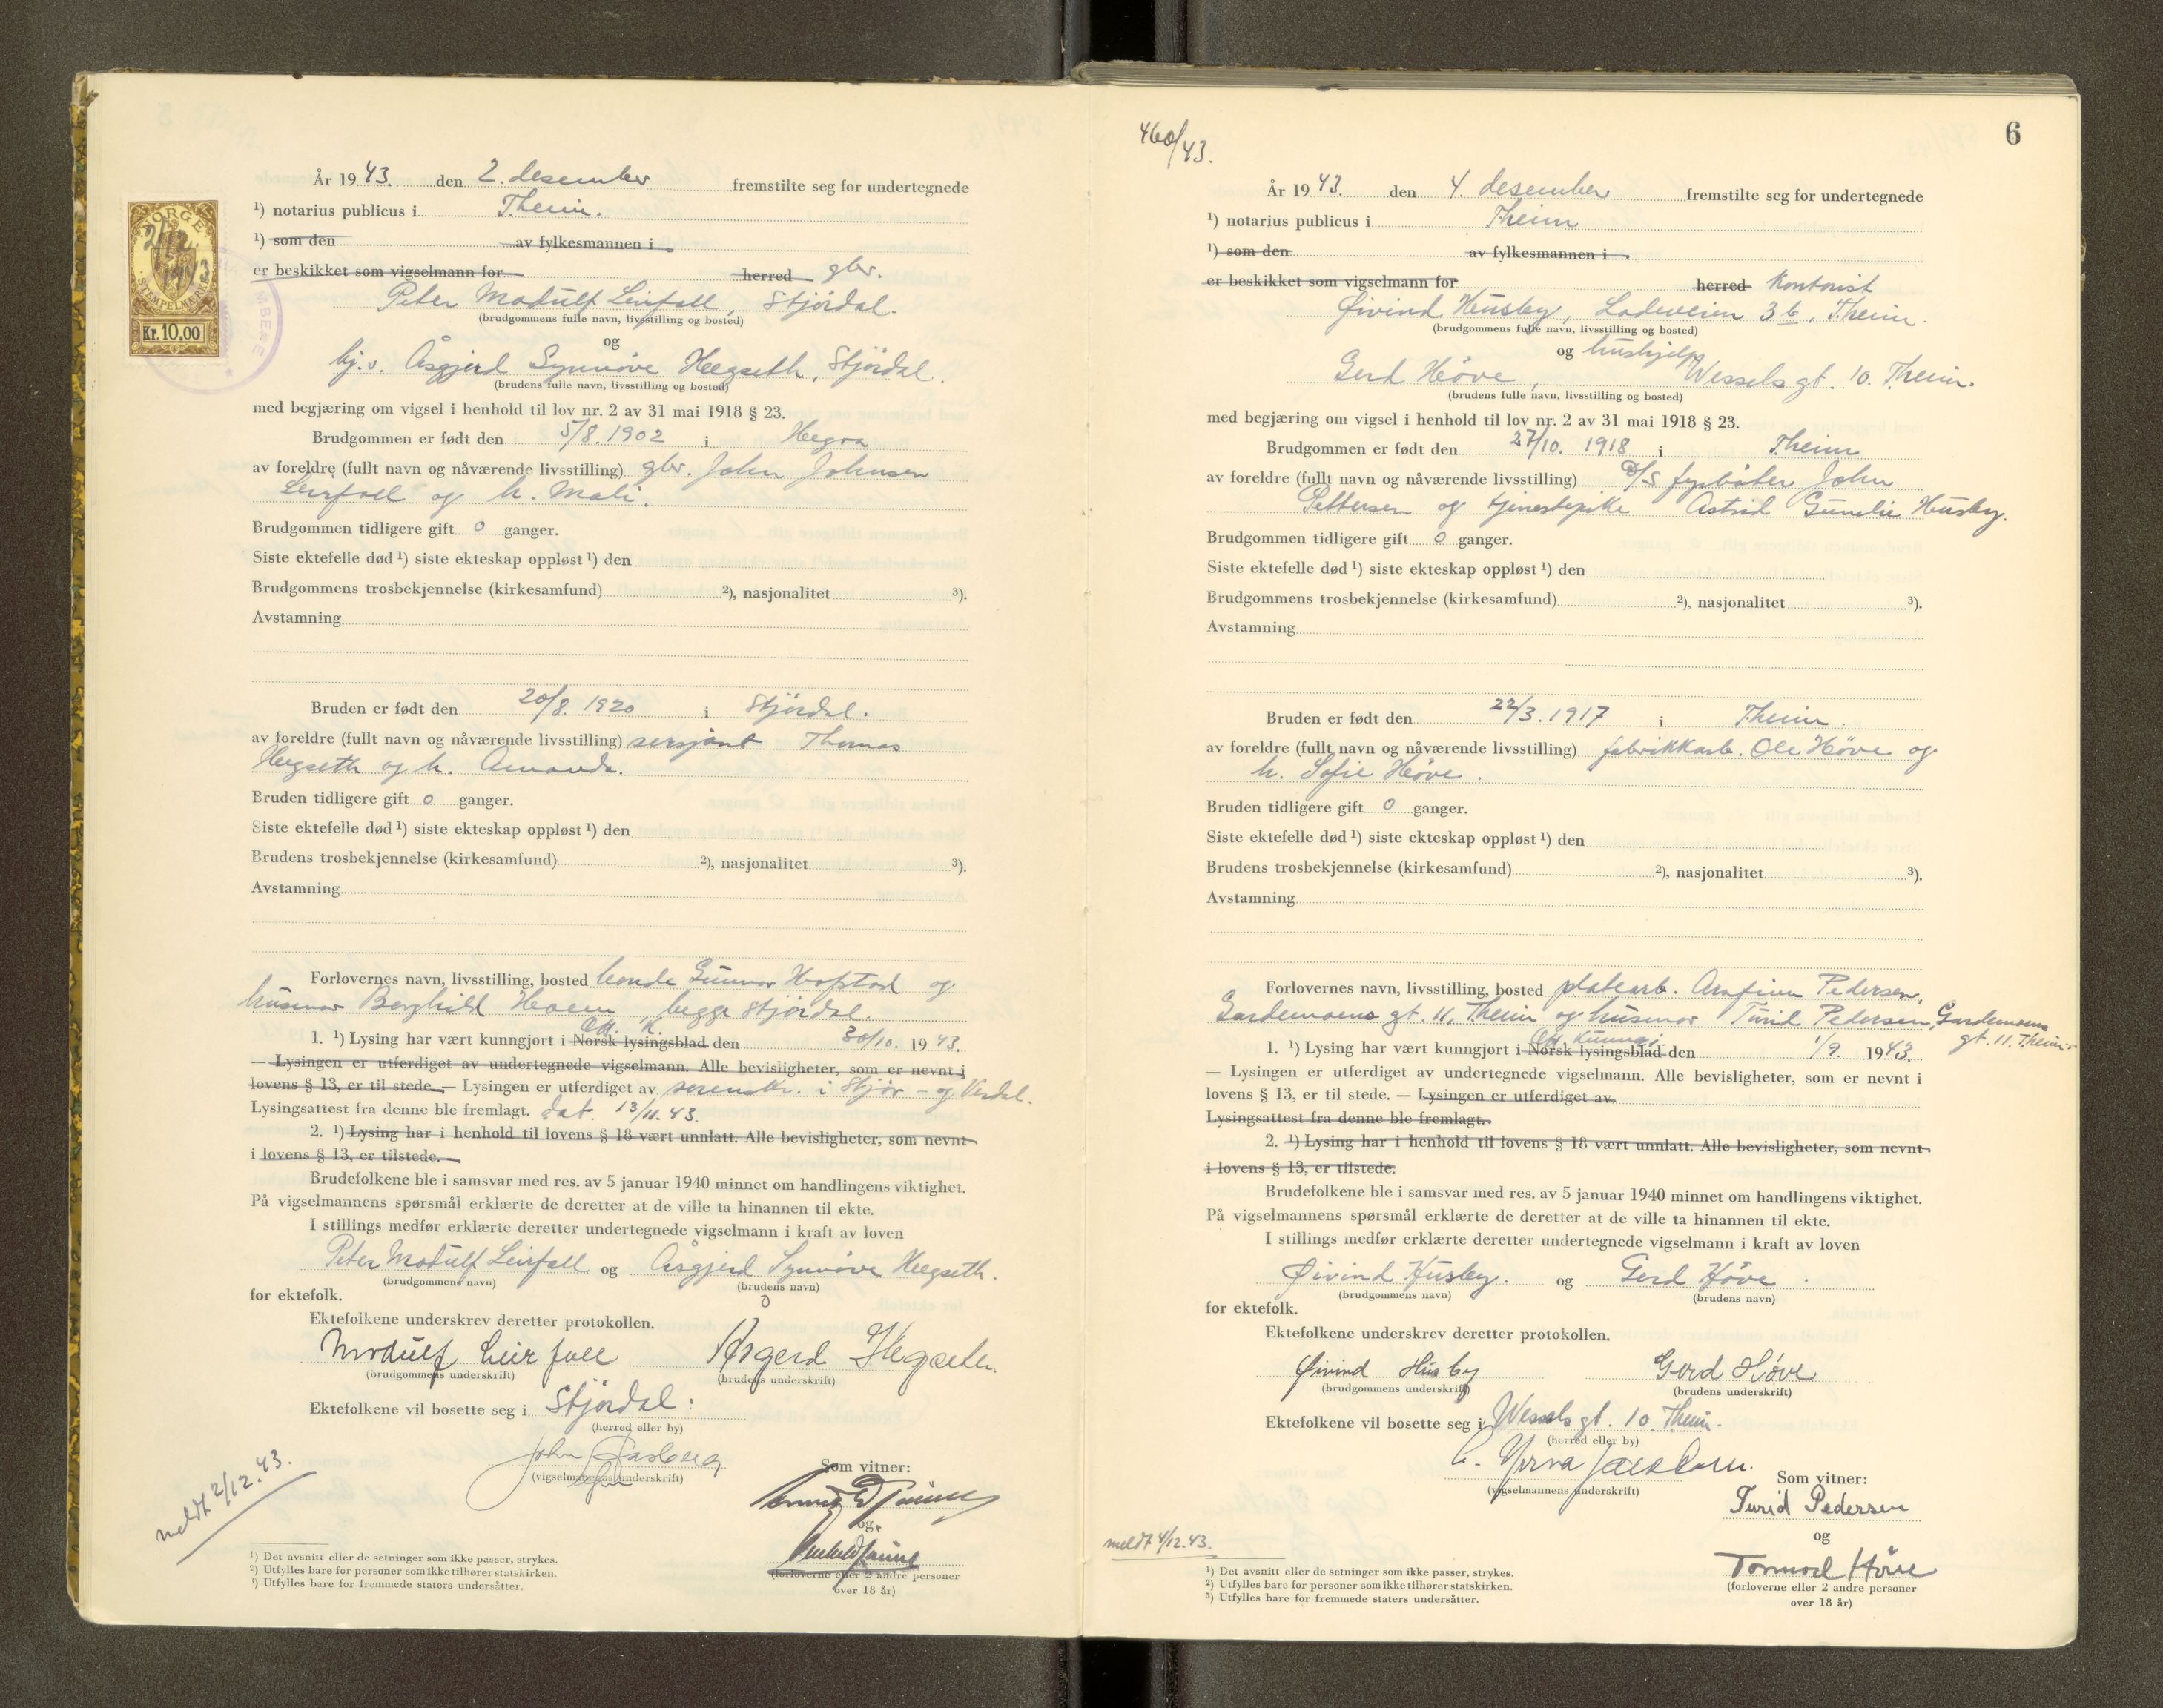 NORGE
2/12 1943
STEMPELMERKE
Kr. 10,00
År 1943. den 2. desember fremstilte seg for undertegnede
¹) notarius publicus i T.heim.
¹) som den av fylkesmannen i
er beskikket som vigselmann for herred gbr.
Peter Modulf Leirfall, Stjördal.
(brudgommens fulle navn, livsstilling og bosted)
og
hj.v. Åsgjerd Synnöve Hegseth, Stjördal.
(brudens fulle navn, livsstilling og bosted)
med begjæring om vigsel i henhold til lov nr. 2 av 31 mai 1918 § 23.
Brudgommen er født den 5/8. 1902 i Hegra
av foreldre (fullt navn og nåværende livsstilling) gbr. John Johnsen
Leirfall og h. Mali.
Brudgommen tidligere gift 0 ganger.
Siste ektefelle død ¹) siste ekteskap oppløst ¹) den
Brudgommens trosbekjennelse (kirkesamfund) ²), nasjonalitet ³).
Avstamning
Bruden er født den 20/8. 1920 i Stjördal.
av foreldre (fullt navn og nåværende livsstilling) sersjant Thomas
Hegseth og h. Amanda.
Bruden tidligere gift 0 ganger.
Siste ektefelle død ¹) siste ekteskap oppløst ¹) den
Brudens trosbekjennelse (kirkesamfund) ²), nasjonalitet ³).
Avstamning
Forlovernes navn, livsstilling, bosted bonde Gunnar Hofstad og
husmor Borghild begge Stjördal.
Off. K.
1. ¹) Lysing har vært kunngjort i Norsk lysingsblad den 30/10. 1943.
— Lysingen er utferdiget av undertegnede vigselmann. Alle bevisligheter, som er nevnt i
lovens § 13, er til stede. — Lysingen er utferdiget av sorenskr. i Stjör- og Verdal.
Lysingsattest fra denne ble fremlagt. dat. 13/11.43.
2. ¹) Lysing har i henhold til lovens § 18 vært unnlatt. Alle bevisligheter, som nevnt
i lovens § 13, er tilstede. —
Brudefolkene ble i samsvar med res. av 5 januar 1940 minnet om handlingens viktighet.
På vigselmannens spørsmål erklærte de deretter at de ville ta hinannen til ekte.
I stillings medfør erklærte deretter undertegnede vigselmann i kraft av loven
Peter Modulf Leirfall og Åsgjerd Synnöve Hegseth.
(brudgommens navn) (brudens navn)
for ektefolk.
Ektefolkene underskrev deretter protokollen.
Modulf Leirfall Åsgerd Hegseth.
(brudgommens underskrift) (brudens underskrift)
Ektefolkene vil bosette seg i Stjördal.
(herred eller by)
John
(vigselmannens underskrift)
Som vitner:
og
(forloverne eller 2 andre personer
over 18 år)
meldt 2/12.43.
¹) Det avsnitt eller de setninger som ikke passer, strykes.
²) Utfylles bare for personer som ikke tilhører statskirken.
³) Utfylles bare for fremmede staters undersåtter.
6
460/43.
År 1943. den 4. desember fremstilte seg for undertegnede
¹) notarius publicus i T.heim
¹) som den av fylkesmannen i
er beskikket som vigselmann for herred Kontorist
Øivind Husby, Ladeveien 3b, T.heim.
(brudgommens fulle navn, livsstilling og bosted)
og hushjelp
Gerd Höve, Wesselsgt. 10. T.heim.
(brudens fulle navn, livsstilling og bosted)
med begjæring om vigsel i henhold til lov nr. 2 av 31 mai 1918 § 23.
Brudgommen er født den 27/10. 1918 i T.heim
av foreldre (fullt navn og nåværende livsstilling) D/S fyrböter John
Pettersen og tjenestepike Astrid Gunelie Husby.
Brudgommen tidligere gift 0 ganger.
Siste ektefelle død ¹) siste ekteskap oppløst ¹) den
Brudgommens trosbekjennelse (kirkesamfund) ²), nasjonalitet ³).
Avstamning
Bruden er født den 22/3. 1917 i T.heim.
av foreldre (fullt navn og nåværende livsstilling) fabrikkarb. Ole Höve og
h. Sofie Höve.
Bruden tidligere gift 0 ganger.
Siste ektefelle død ¹) siste ekteskap oppløst ¹) den
Brudens trosbekjennelse (kirkesamfund) ²), nasjonalitet ³).
Avstamning
Forlovernes navn, livsstilling, bosted platearb. Arnfinn Pedersen,
Gardemoens gt. 11, T.heim og husmor Turid Pedersen, Gardemoens
gt. 11. T.heim
Off. Kunngj.
1. ¹) Lysing har vært kunngjort i Norsk lysingsblad den 1/9. 1943.
— Lysingen er utferdiget av undertegnede vigselmann. Alle bevisligheter, som er nevnt i
lovens § 13, er til stede. — Lysingen er utferdiget av
Lysingsattest fra denne ble fremlagt.
2. ¹) Lysing har i henhold til lovens § 18 vært unnlatt. Alle bevisligheter, som nevnt
i lovens § 13, er tilstede.
Brudefolkene ble i samsvar med res. av 5 januar 1940 minnet om handlingens viktighet.
På vigselmannens spørsmål erklærte de deretter at de ville ta hinannen til ekte.
I stillings medfør erklærte deretter undertegnede vigselmann i kraft av loven
Øivind Husby. og Gerd Höve.
(brudgommens navn) (brudens navn)
for ektefolk.
Ektefolkene underskrev deretter protokollen.
Øivind Husby Gerd Höve
(brudgommens underskrift) (brudens underskrift)
Ektefolkene vil bosette seg i Wessels gt. 10. T.heim.
(herred eller by)
Jacobsen.
(vigselmannens underskrift)
Som vitner:
Turid Pedersen
og
Tormod Höve
(forloverne eller 2 andre personer
over 18 år)
meldt 4/12.43.
¹) Det avsnitt eller de setninger som ikke passer, strykes.
²) Utfylles bare for personer som ikke tilhører statskirken.
³) Utfylles bare for fremmede staters undersåtter.